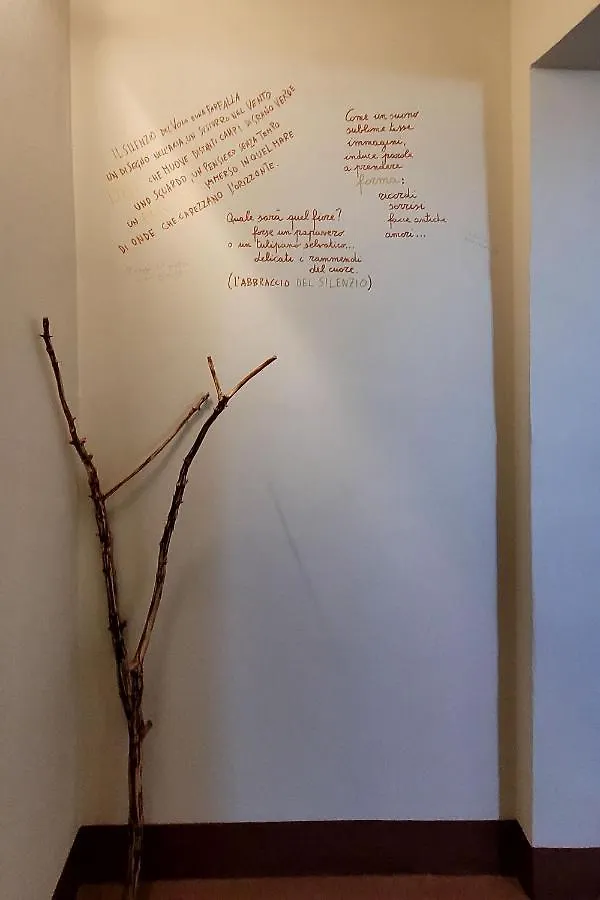 IL SILENZIO DEL VOLO D'UNA FARFALLA
UN DISEGNO NELL'ARIA, UN SUSSURRO NEL VENTO
CHE MUOVE DISTANTI CAMPI DI GRANO VERDE
UNO SGUARDO UN PENSIERO SENZA TEMPO
UN IMMERSO IN QUEL MARE
DI ONDE CHE CAREZZANO L'ORIZZONTE.
Quale sarà quel fiore?
forse un papavero
o un tulipano selvatico...
delicati i rammendi
del cuore.
(L'ABBRACCIO DEL SILENZIO)
Come un suono
sublime tesse
immagini,
induce parole
a prendere
forma:
ricordi
sorrisi
facce antiche
amori...